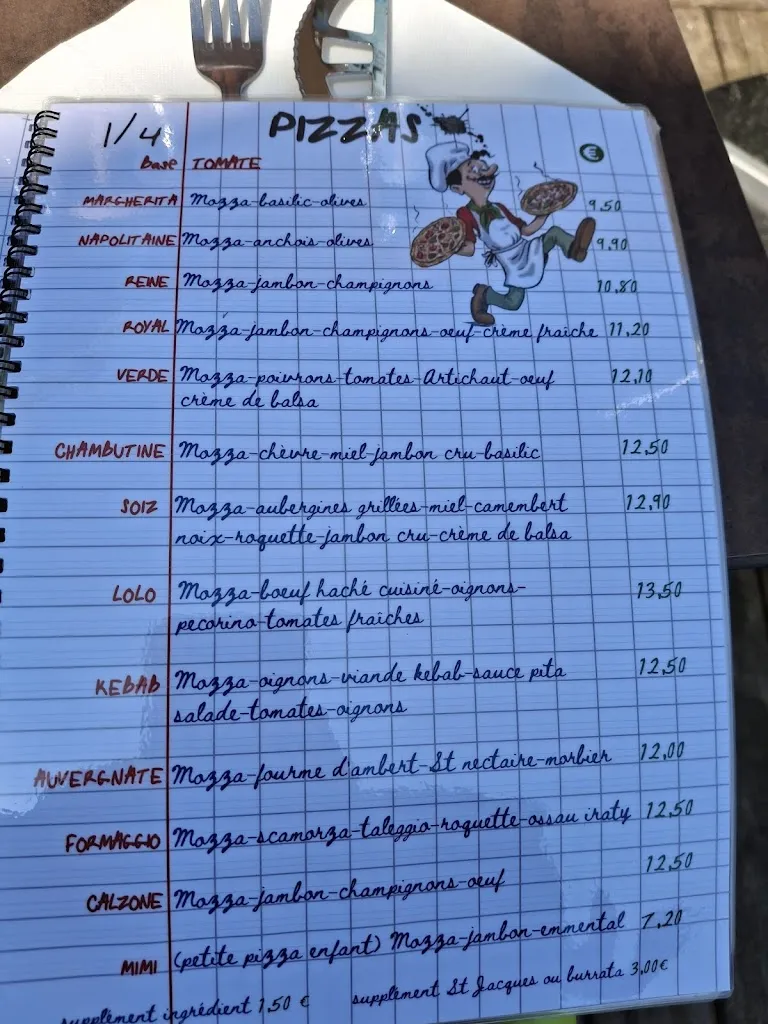 1/4 PIZZAS
Base TOMATE €
MARGHERITA Mozza-basilic-olives 9,50
NAPOLITAINE Mozza-anchois-olives 9,90
REINE Mozza-jambon-champignons 10,80
ROYAL Mozza-jambon-champignons-oeuf-crème fraîche 11,20
VERDE Mozza-poivrons-tomates-Artichaut-oeuf 12,10
crème de balsa
CHAMBUTINE Mozza-chèvre-miel-jambon cru-basilic 12,50
SOIZ Mozza-aubergines grillées-miel-camembert 12,90
noix-roquette-jambon cru-crème de balsa
LOLO Mozza-boeuf haché cuisiné-oignons- 13,50
pecorino-tomates fraîches
KEBAB Mozza-oignons-viande kebab-sauce pita 12,50
salade-tomates-oignons
AUVERGNATE Mozza-fourme d'ambert-St nectaire-morbier 12,00
FORMAGGIO Mozza-scamorza-taleggio-roquette-ossau iraty 12,50
CALZONE Mozza-jambon-champignons-oeuf 12,50
MIMI (petite pizza enfant) Mozza-jambon-emmental 7,20
supplément ingrédient 1,50 € supplément St Jacques ou burrata 3,00€